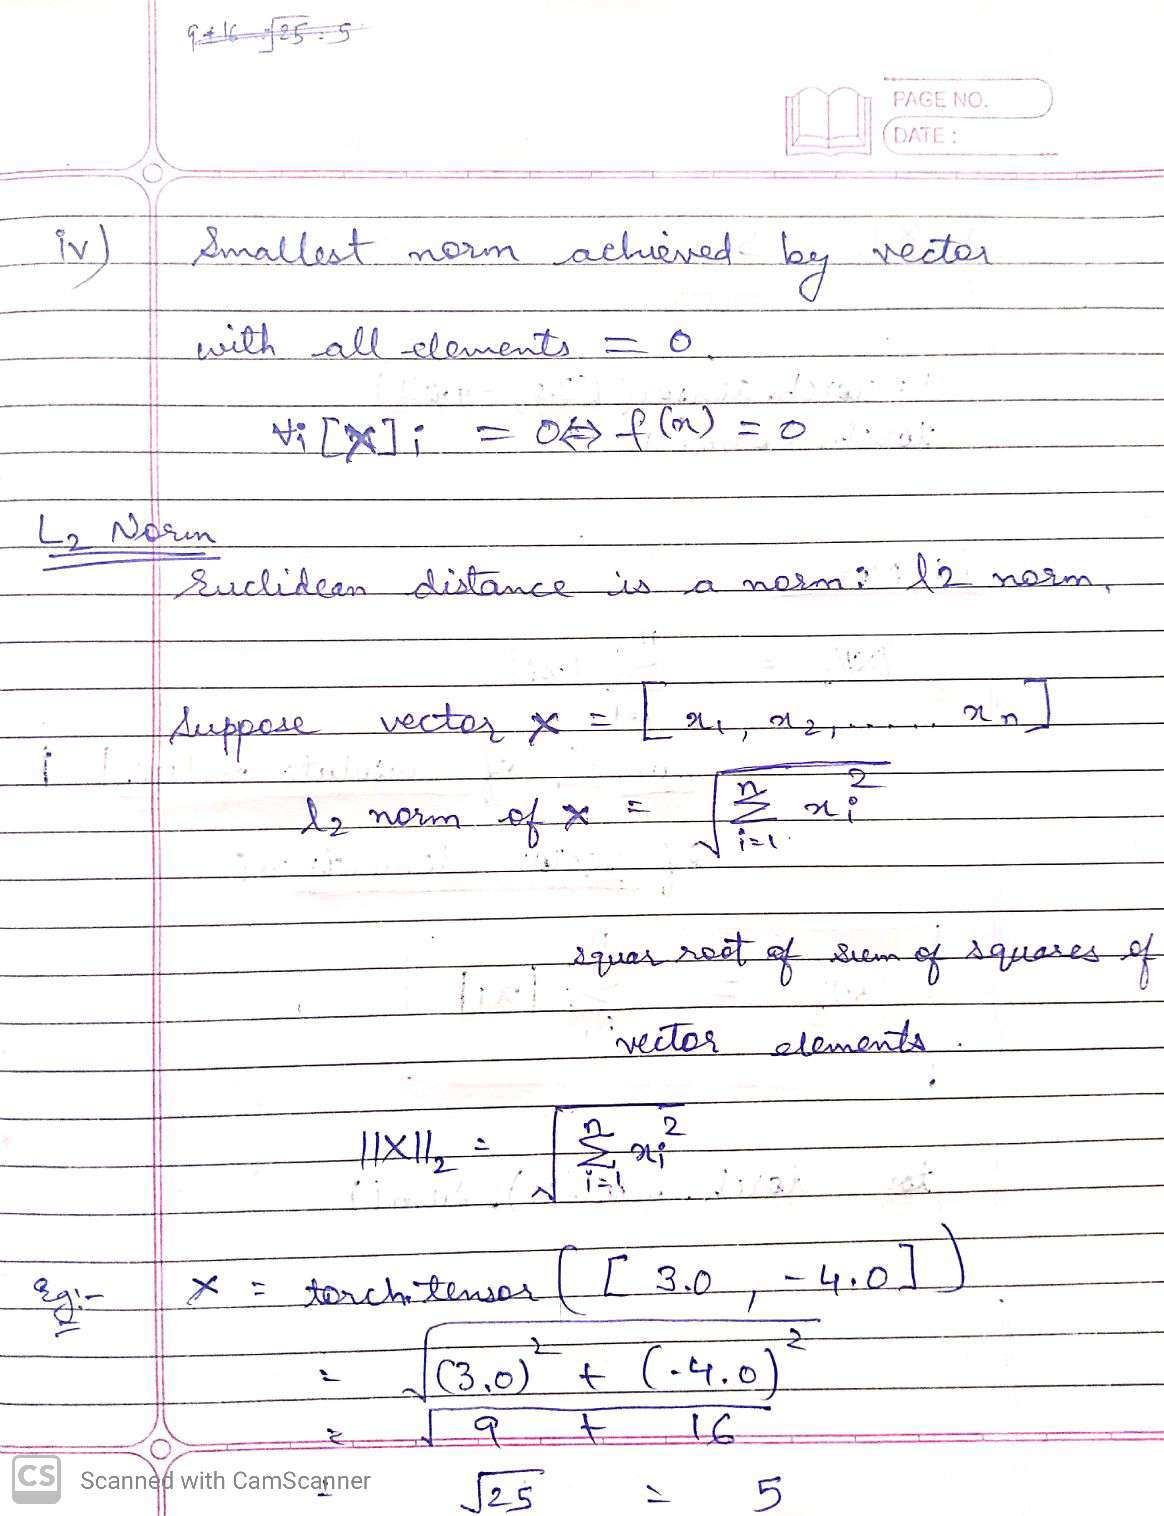 9+16 = √25 = 5
PAGE NO.
DATE :
iv) Smallest norm achieved by vector
with all elements = 0.
∀i [X]i = 0 ⇔ f(x) = 0
L2 Norm
Euclidean distance is a norm: l2 norm,
Suppose vector x = [x1, x2, ..... xn]
l2 norm of x = √ n Σ i=1 xi²
squar root of sum of squares of
vector elements.
||X||2 = √ n Σ i=1 xi²
Eg:- x = torch.tensor([3.0, -4.0])
= √(3.0)² + (-4.0)²
= √9 + 16
= √25 = 5
CS Scanned with CamScanner